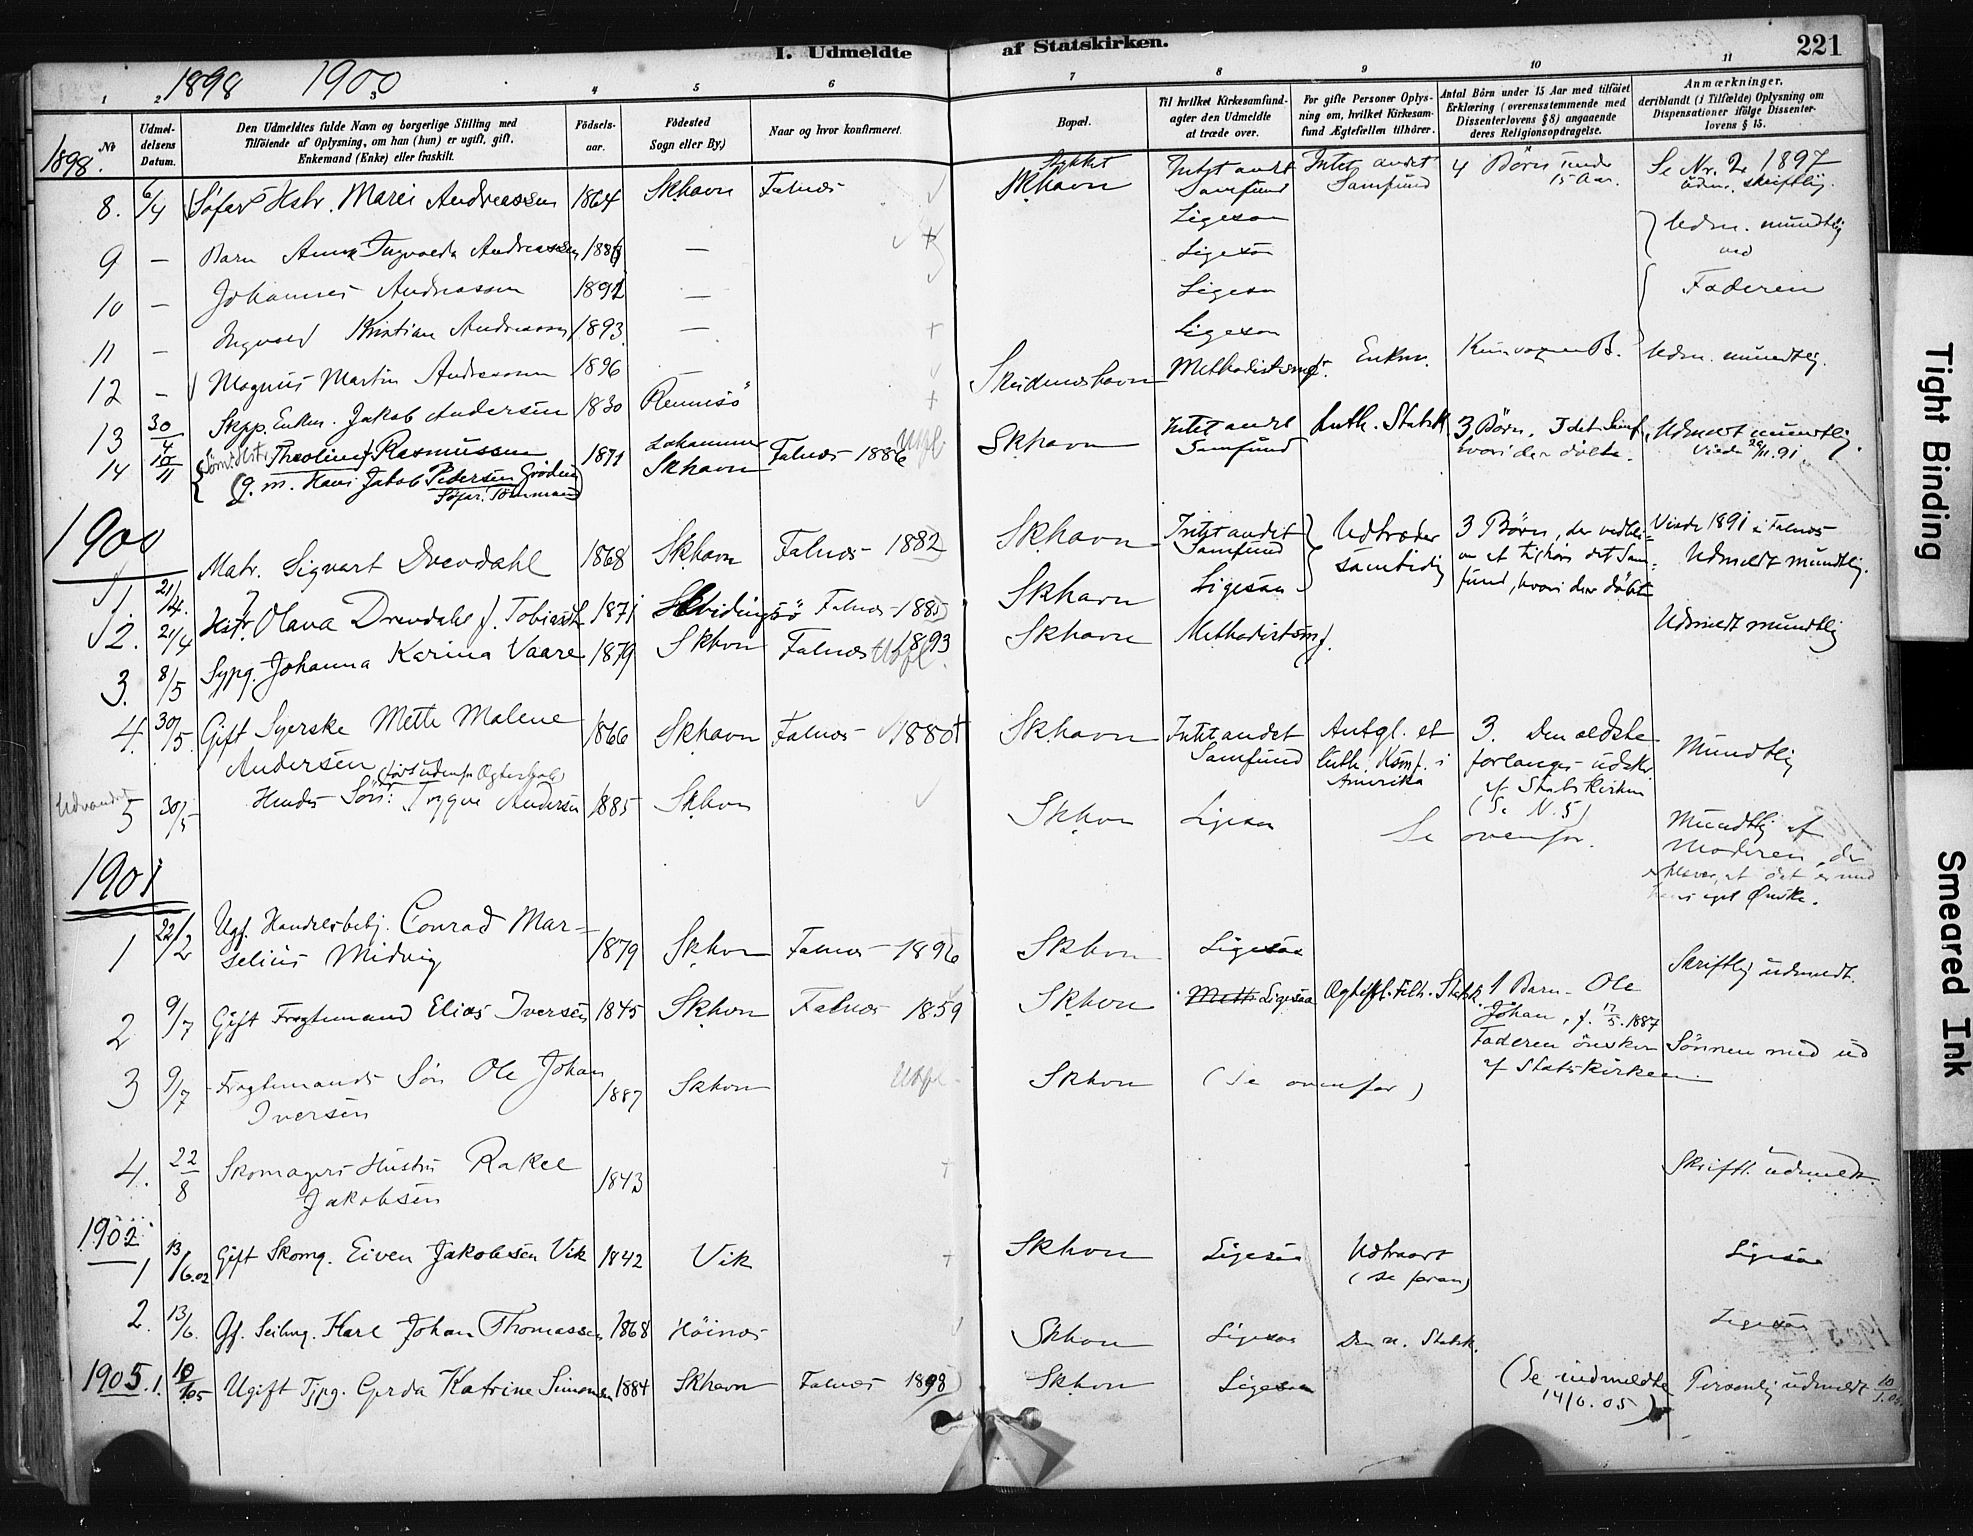 I. Udmeldte af Statskirken.
221
1898 1900
1 2 3 4 5 6 7 8 9 10 11
№
Udmeldelsens Datum.
Den Udmeldtes fulde Navn og borgerlige Stilling med
Tilföiende af Oplysning, om han (hun) er ugift, gift,
Enkemand (Enke) eller fraskilt.
Födselsaar.
Födested
Sogn eller By,)
Naar og hvor konfirmeret.
Bopæl.
Til hvilket Kirkesamfund-
agter den Udmeldte
at træde over.
For gifte Personer Oplys-
ning om, hvilket Kirkesam-
fund Ægtefællen tilhörer.
Antal Börn under 15 Aar med tilföiet
Erklæring (overensstemmende med
Dissenterlovens § 8) angaaende
deres Religionsopdragelse.
Anmærkninger,
deriblandt (i Tilfælde) Oplysning om
Dispensationer ifölge Dissenter-
lovens § 15.
1898.
8. 6/4 Söfar Hstr. Marei Andreassen 1864 Skhavn Falnæs Skhavn Intet andet Samfund Intet andet Samfund 4 Börn under 15 Aar. Se Nr. 2 1897
Udm. skriftlig.
Ligesaa
9 — Barn Anna Ingvoda Andreassen — Ligesaa Udm. mundtlig
ved
10 — Johannes Andreassen — Ligesaa Faderen
11 — Ingvald Kristian Andreassen 1893 — Ligesaa
12 — Magnus Martin Andreassen 1896 —
13 30/4 Skpp. Enkm. Jakob Andersen 1830 Rennesö Skudeneshavn Methodistsmf. Enkm. Udm. mundtlig.
14 10/11 Theoline f. Rasmussen 1871 Skhavn Falnæs 1886 Skhavn Intet andet Samfund Luth. Statsk. 3 Börn. I det Samf., hvori de er döbte. Udmeldt mundtlig.
Viede 91
g. m. Hans Jakob Pedersen
Söfar. Tömmermand
1900
1. 21/4. Matr. Sigvart Drevdahl 1868 Skhavn Falnæs 1882 Skhavn Intet andet Samfund Udtræder samtidig 3 Börn, der vedbli-
ver at tilhöre det Sam-
fund, hvori de er döbte
Viede 1891 i Falnæs
Udmeldt mundtlig.
2. 21/4 Hstr. Olava Drevdahl f. 1871 Falnæs 1885 Skhavn Ligesaa
3. 8/5 Sypg. Johanna Karina Vaare 1879 Skhavn Falnæs 1893 Skhavn Methodistsmf. Udmeldt mundtlig
4. 30/5. Gift Syerske Mette Malene
Andersen 1866 Skhavn Falnæs 1880 Skhavn Intet andet Samfund Antgl. et
luth. Ksmf. i
Amerika
3. Den ældste
forlanges udskr.
af Statskirken
(Se N. 5)
Mundtlig
Udvandret
5 30/5 (födt udenfor Ægteskab)
Hendes Sön: Trygve Andersen 1885 Skhvn Skhvn Ligesaa Se ovenfor. Mundtlig af
Moderen, der
erklærer, at det er med
hans eget Önske.
1901
1 22/2 Ugf. Handelsbetj. Conrad Mar-
selius Midvig 1879 Skhvn Falnæs 1896 Skhvn Ligesaa Skriftlig udmeldt.
2 9/7 Gift Fragtmand Elias Iversen 1845 Skhvn Falnæs 1859 Skhvn Ligesaa 1 Barn - Ole
Johan, f. 17/5. 1887
Faderen önsker Sönnen med ud
af Statskirken
3 9/7 Fragtmands Sön Ole Johan
Iversen 1887 Skhvn Skhvn (Se ovenfor)
4. 22/8 Skomagers Hustru Rakel
Jakobsen 1843 Skriftl. udmeldt.
1902
1 13/6.02 Gift Skomg. Eiven Jakobsen Vik 1842 Vik Skhvn Ligesaa Udtraadt
(se foran)
Ligesaa
2. 13/6. Gf. Seilmg. Karl Johan Thomassen 1868 Höinæs Skhvn Ligesaa Den n. Statsk. Ligesaa
1905. 1. Ugift Tjpg. Gerda Katrine Simonsen 1884 Skhavn Falnæs 1898 Skhvn Ligesaa (Se indmeldte
14/6. 05)
Personlig udmeldt
Tight Binding
Smeared Ink